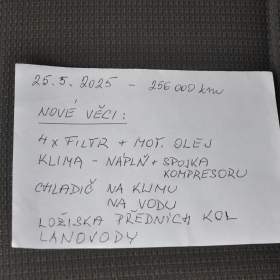 25.5.2025 - 256 000 km
NOVÉ VĚCI:
4x FILTR + MOT. OLEJ
KLIMA - NÁPLŇ + SPOJKA
KOMPRESORU
CHLADIČ NA KLIMU
NA VODU
LOŽISKA PŘEDNÍCH KOL
LANOVODY